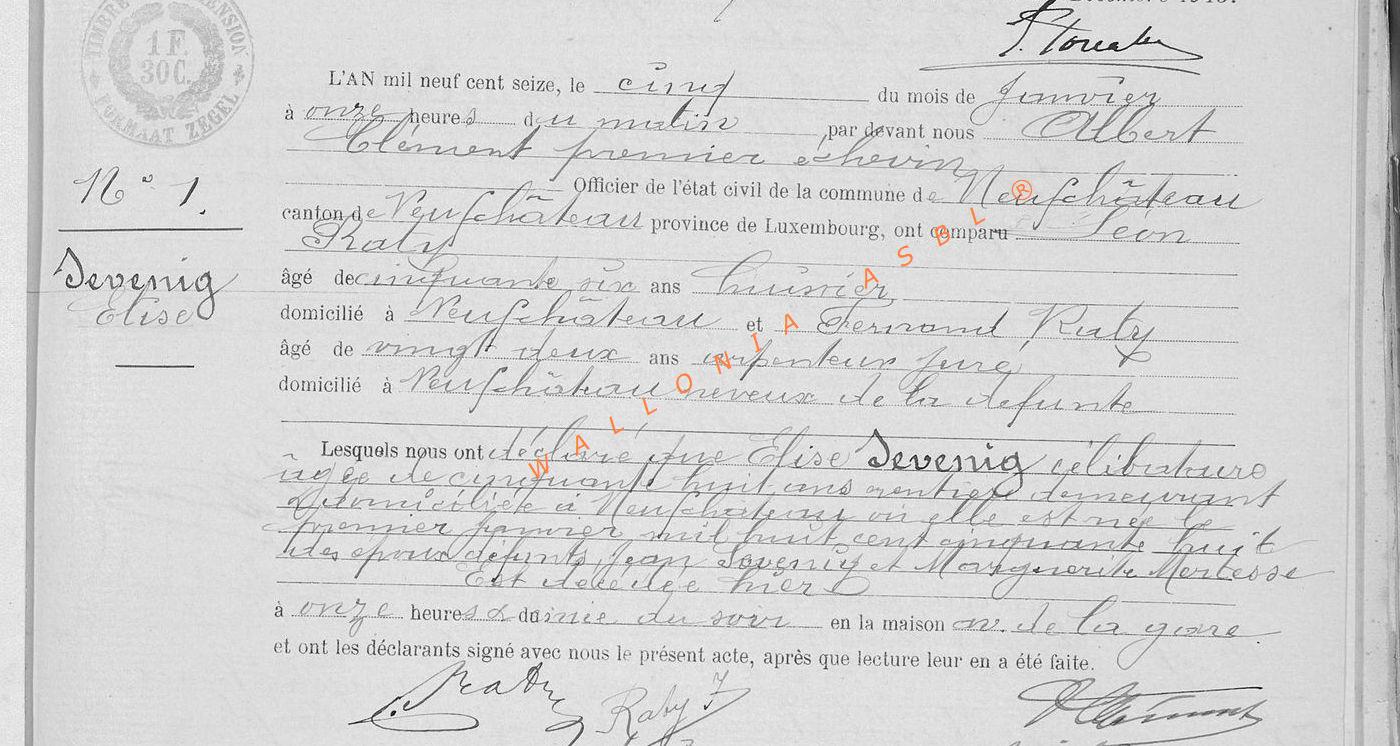 TIMBRE DIMENSION
1 F.
30 C.
FORMAAT ZEGEL
L'AN mil neuf cent seize, le cinq du mois de Janvier
à onze heures du matin par devant nous Albert
Clément premier échevin
Nº 1.
Officier de l'état civil de la commune de Neufchâteau
canton de Neufchâteau province de Luxembourg, ont comparu Léon
Raty
Sevenig
Elise
âgé de cinquante six ans huissier
domicilié à Neufchâteau et Fernand Raty
âgé de vingt deux ans arpenteur juré
domicilié à Neufchâteau neveux de la défunte
Lesquels nous ont déclaré que Elise Sevenig célibataire
âgée de cinquante huit ans rentière demeurant
& domiciliée à Neufchâteau où elle est née le
premier janvier mil huit cent cinquante huit
des époux défunts Jean Sevenig et Marguerite Mertesse
Est décédée hier
à onze heures & demie du soir en la maison av. de la gare
et ont les déclarants signé avec nous le présent acte, après que lecture leur en a été faite.
Raty Raty F
WALLONIA ASBL ®